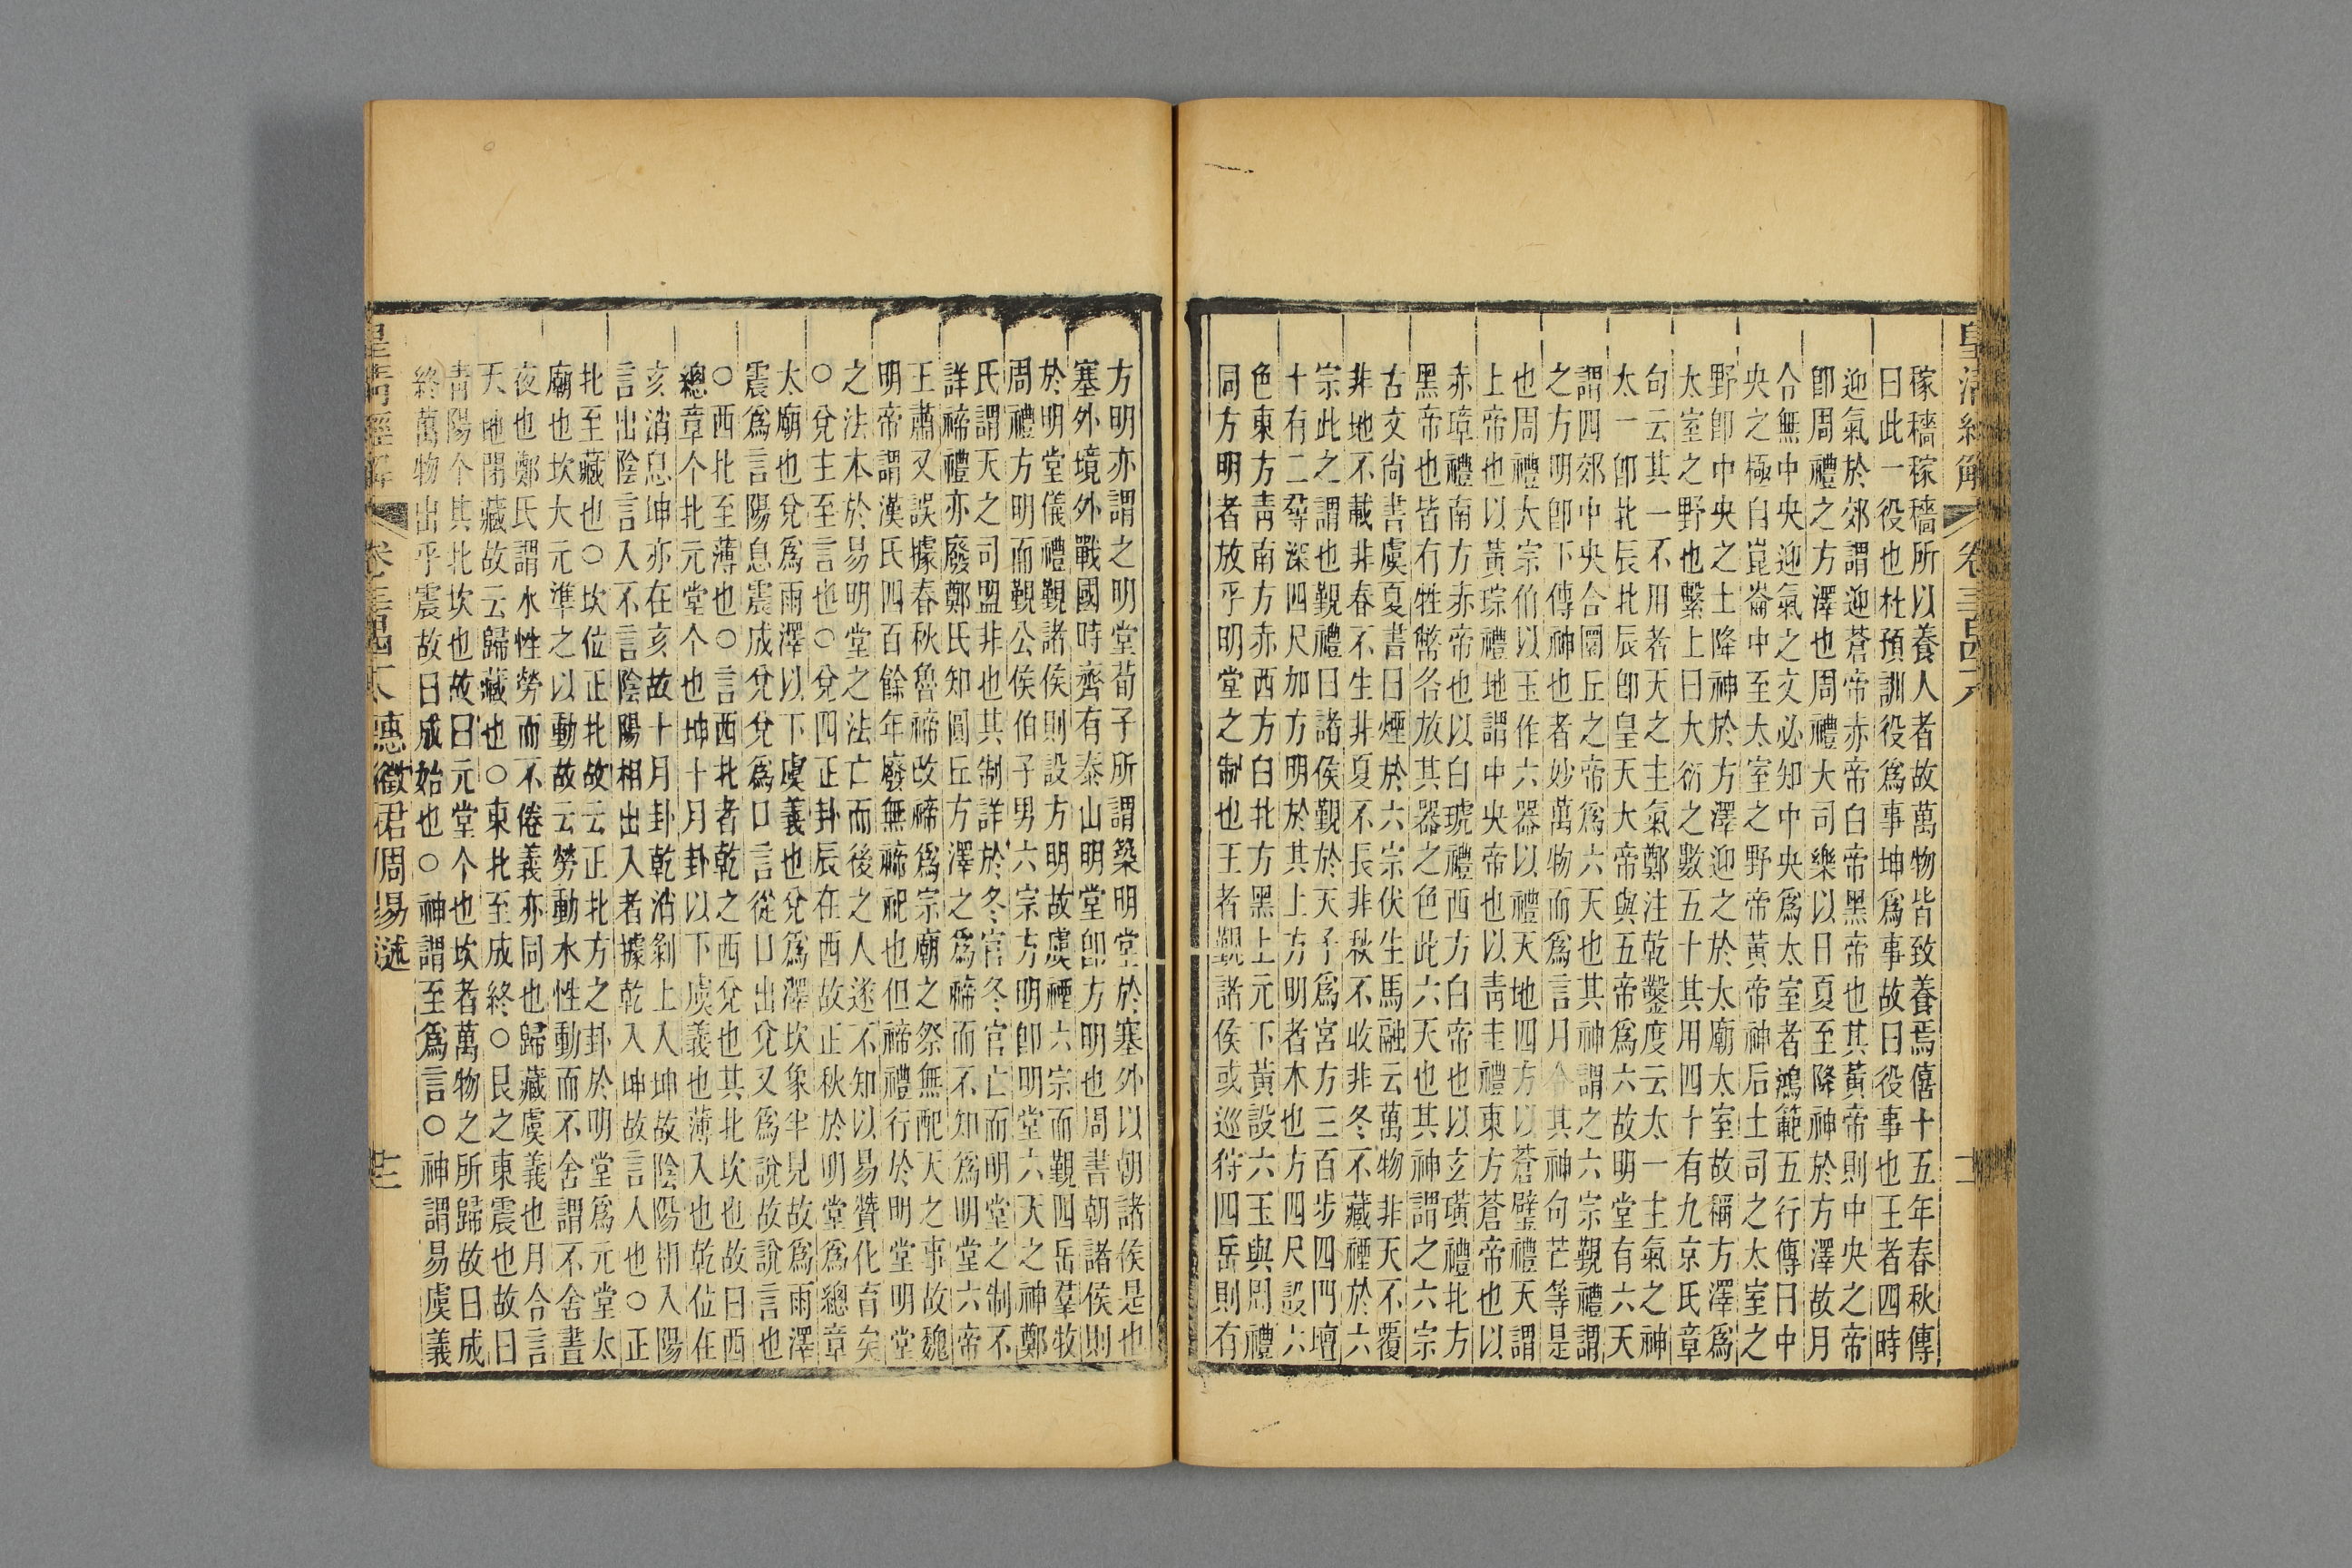 皇清經解
卷三百四十六
稼穡稼穡所以養人者故萬物皆致養焉僖十五年春秋傳
曰此一役也杜預訓役爲事坤爲事故曰役事也王者四時
迎氣於郊謂迎蒼帝赤帝白帝黑帝也其黃帝則中央之帝
卽周禮之方澤也周禮大司樂以日夏至降神於方澤故月
令無中央迎氣之文必知中央爲太室者鴻範五行傳曰中
央之極自崑崙中至太室之野帝黃帝神后土司之太室之
野卽中央之土降神於方澤迎之於太廟太室故稱方澤爲
太室之野也繫上曰大衍之數五十其用四十有九京氏章
句云其一不用者天之主氣鄭注乾鑿度云太一主氣之神
太一卽北辰北辰卽皇天大帝與五帝爲六故明堂有六天
謂四郊中央合圜丘之帝爲六天也其神謂之六宗覲禮謂
之方明卽下傳神也者妙萬物而爲言月令其神句芒等是
也周禮大宗伯以玉作六器以禮天地四方以蒼璧禮天謂
上帝也以黃琮禮地謂中央帝也以青圭禮東方蒼帝也以
赤璋禮南方赤帝也以白琥禮西方白帝也以玄璜禮北方
黑帝也皆有牲幣各放其器之色此六天也其神謂之六宗
古文尙書虞夏書曰煙於六宗伏生馬融云萬物非天不覆
非地不載非春不生非夏不長非秋不收非冬不藏禋於六
宗此之謂也覲禮曰諸侯覲於天子爲宮方三百步四門壇
十有二尋深四尺加方明於其上方明者木也方四尺設六
色東方青南方赤西方白北方黑上元下黃設六玉與周禮
同方明者放乎明堂之制也王者覲諸侯或巡狩四岳則有
方明亦謂之明堂荀子所謂築明堂於塞外以朝諸侯是也
塞外境外戰國時齊有泰山明堂卽方明也周書朝諸侯則
於明堂儀禮覲諸侯則設方明故虞禋六宗而覲四岳羣牧
周禮方明而覲公侯伯子男六宗方明卽明堂六天之神鄭
氏謂天之司盟非也其制詳於冬官冬官亡而明堂之制不
詳禘禮亦廢鄭氏知圓丘方澤之爲禘而不知爲明堂六帝
王肅又誤據春秋魯禘改禘爲宗廟之祭無配天之事故魏
明帝謂漢氏四百餘年廢無禘祀也但禘禮行於明堂明堂
之法本於易明堂之法亡而後之人遂不知以易贊化育矣
○兌主至言也○兌四正卦辰在酉故正秋於明堂爲總章
太廟也兌爲雨澤以下虞義也兌爲澤坎象半見故爲雨澤
震爲言陽息震成兌兌爲口言從口出兌又爲說故說言也
○西北至薄也○言西北者乾之西兌也其北坎也故曰西
總章个北元堂个也坤十月卦以下虞義也薄入也乾位在
亥消息坤亦在亥故十月卦乾消剝上人坤故陰陽相入陽
言出陰言入不言陰陽相出入者據乾入坤故言人也○正
北至藏也○坎位正北故云正北方之卦於明堂爲元堂太
廟也坎大元準之以動故云勞動水性動而不舍謂不舍晝
夜也鄭氏謂水性勞而不倦義亦同也歸藏虞義也月合言
天地閉藏故云歸藏也○東北至成終○艮之東震也故曰
青陽个其北坎也故曰元堂个也坎者萬物之所歸故曰成
終萬物出乎震故曰成始也○神謂至爲言○神謂易虞義
皇清經解
卷三百四十六 惠徵君周易述